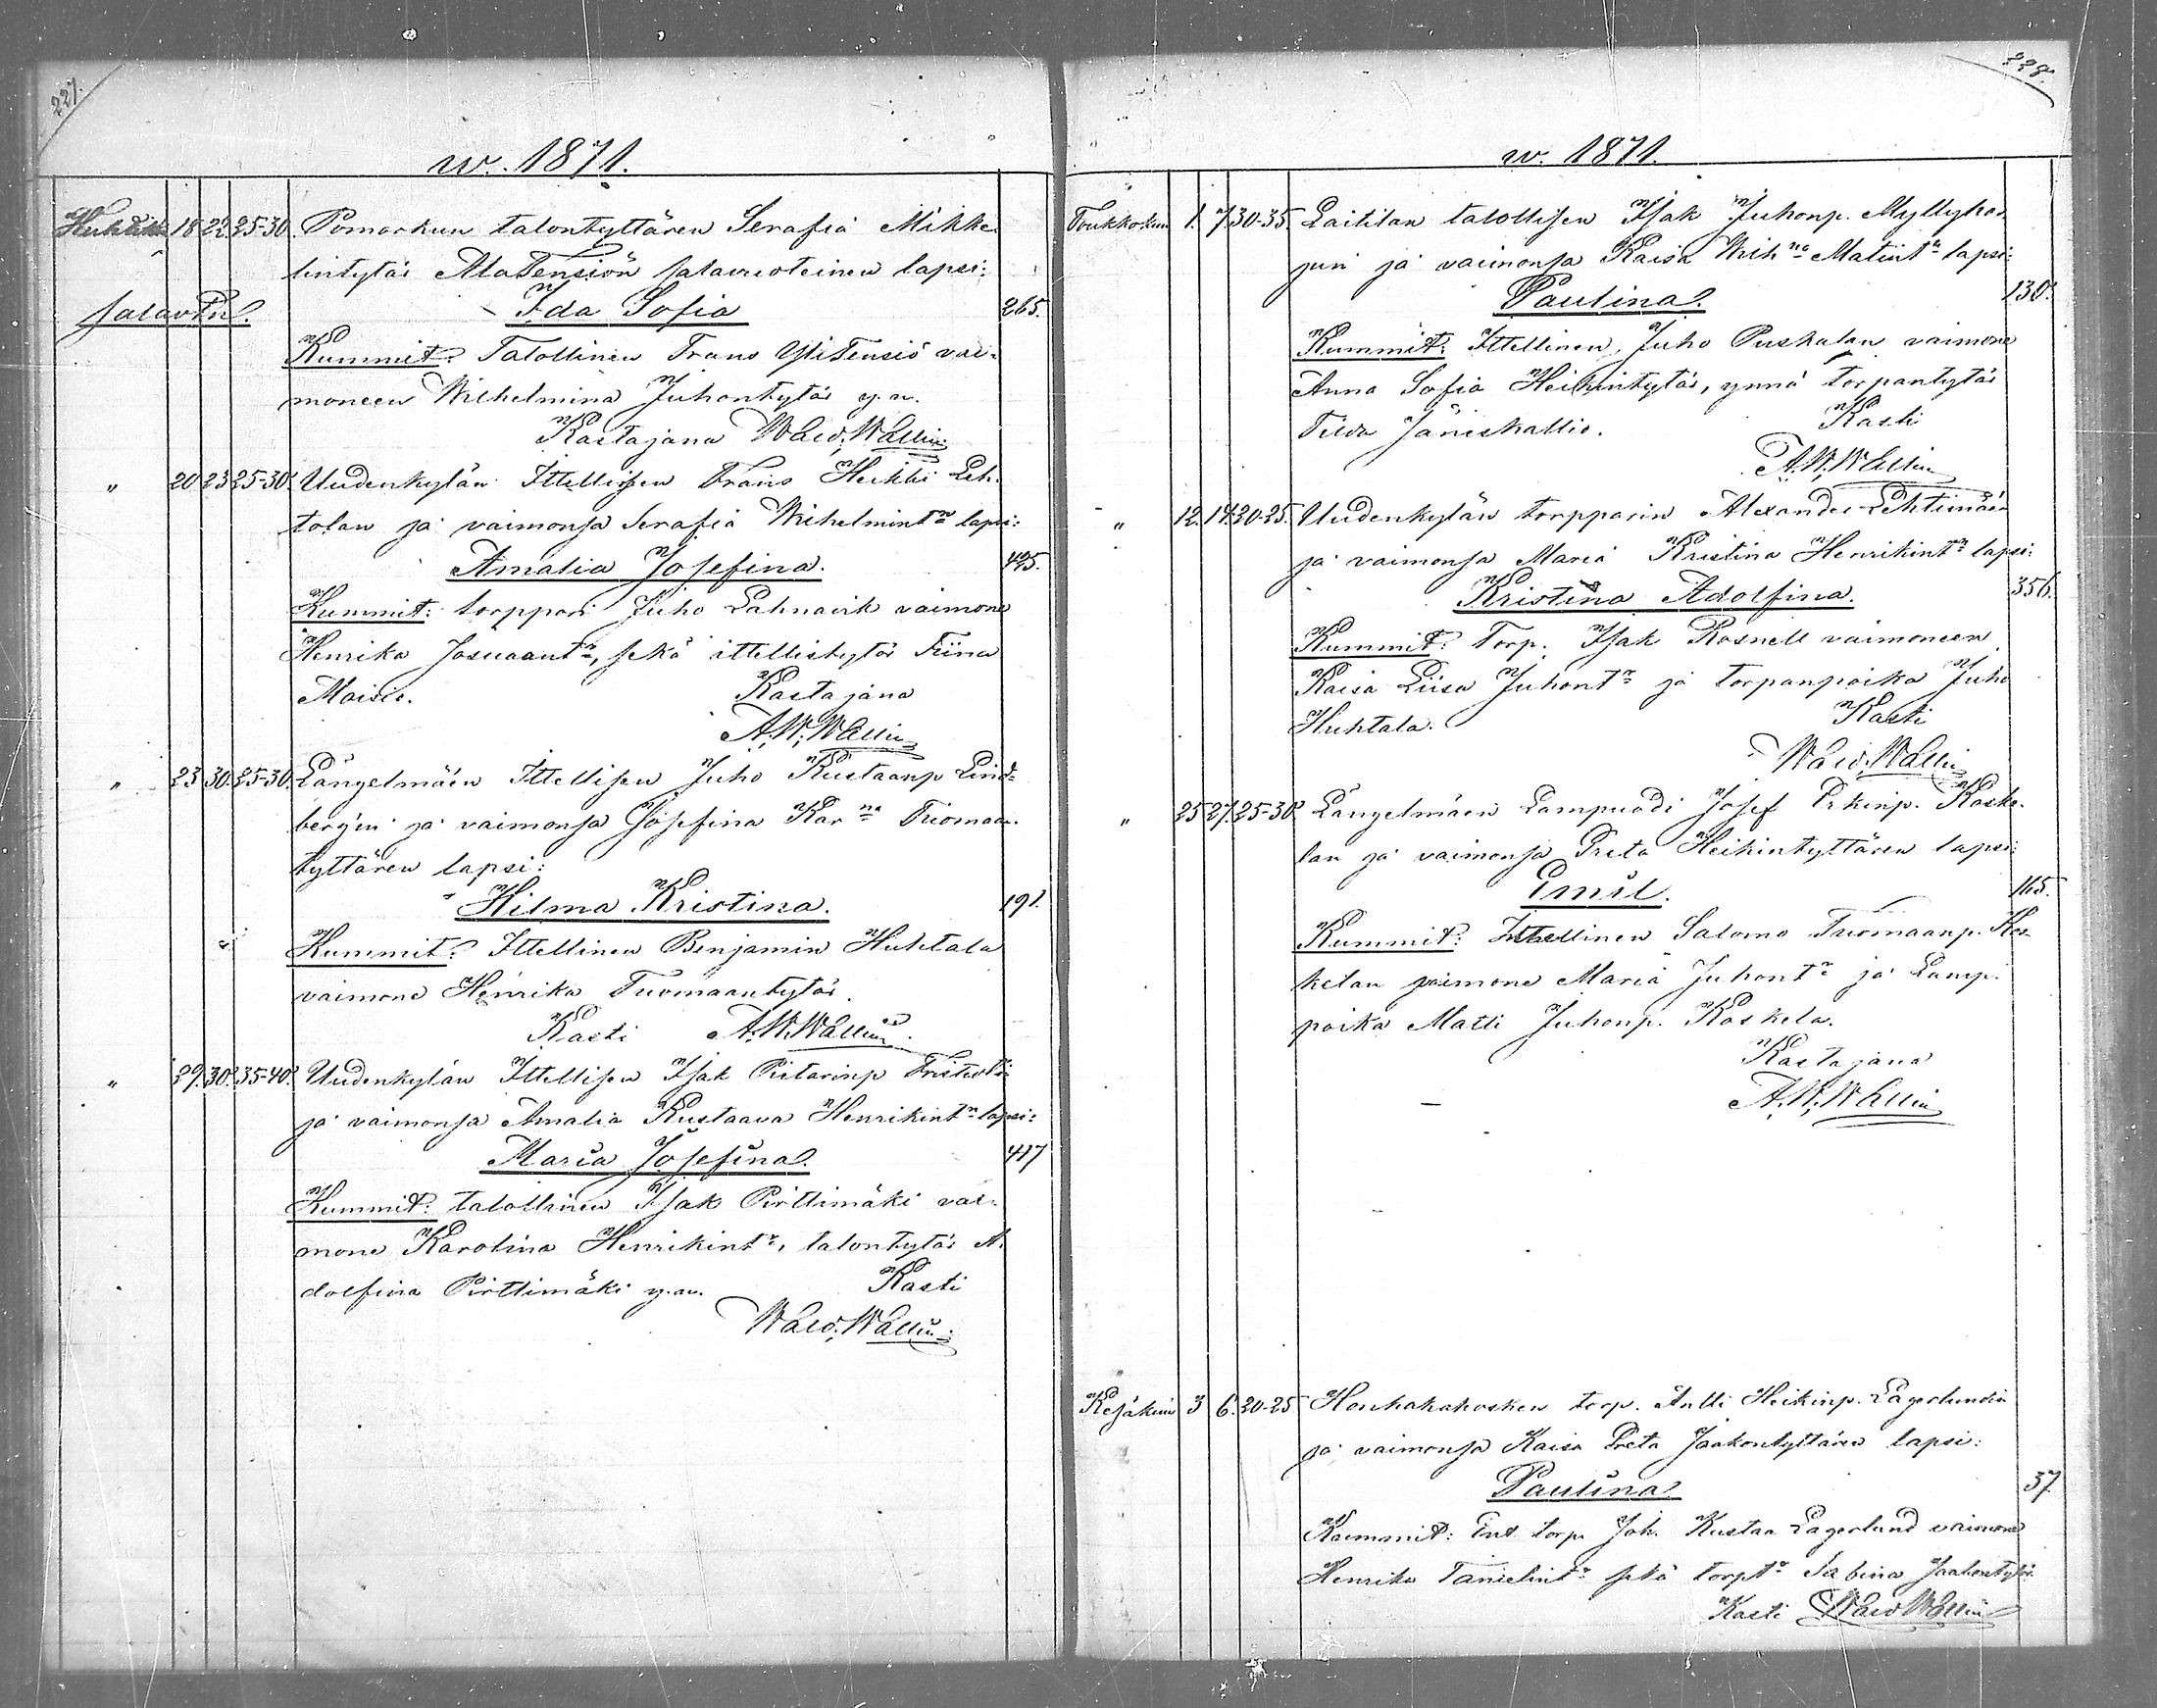 227.
w. 1871.
Huhtik. 18 22 25-30. Pomarkun talontyttären Serafia Mikke-
lintytär AlaTensiön salavuoteinen lapsi:
Ida Sofia 265.
Kummit: Talollinen Frans YliTensiö vai-
moneen Wilhelmina Juhontytär y.m.
Kastajana Wald. Wallin
" 20 23 25-30. Uudenkylän Ittellisen Frans Heikki Leh-
tolan ja vaimonsa Serafia Wilhelmintr lapsi:
Amalia Josefina. 425.
Kummit: torppari Juho Lahnavik vaimone
Henrika Josuaantr, sekä ittellistytär Fiina
Maisi. Kastajana
A. W. Wallin
" 23 30. 25-30. Längelmäen Ittellisen Juho Kustaanp Lind-
berg'in ja vaimonsa Josefina Karna Tuomaan-
tyttären lapsi:
Hilma Kristina. 191.
Kummit: Ittellinen Benjamin Huhtala
vaimone Henrika Tuomaantytär.
Kasti A. W. Wallin.
" 29. 30. 35-40. Uudenkylän Ittellisen Isak Pietarinp
ja vaimonsa Amalia Kustaava Henrikintr lapsi:
Maria Josefina. 417
Kummit: talollinen Isak Pirttimäki vai-
mone Karolina Henrikintr, talontytär A-
dolfina Pirttimäki y.m. Kasti
Wald. Wallin.
228.
w. 1871.
Toukokuu 1. 7. 30-35. Laitilan talollisen Isak Juhonp. Myllyhar-
jun ja vaimonsa Kaisa Wilhna Matintr lapsi:
Paulina. 130.
Kummit: Ittellinen Juho Puskalan vaimone
Anna Sofia Heikintytär, ynnä torpantytär
Tilda Jäniskallio. Kasti
A. W. Wallin
" 12. 14. 20-25. Uudenkylän torpparin Alexander Lehtimäen
ja vaimonsa Maria Kristina Henrikintr lapsi:
Kristina Adolfina. 356.
Kummit: Torp. Isak Rosnell vaimoneen
Kaisa Liisa Juhontr ja torpanpoika Juho
Huhtala. Kasti
Wald. Wallin
" 25 27. 25-30. Längelmäen Lampuodi Josef Erkinp. Koske-
lan ja vaimonsa Preta Heikintyttären lapsi:
Emil. 165.
Kummit: Ittellinen Salomo Tuomaanp. Kos-
kelan vaimone Maria Juhontr ja Lamp.
poika Matti Juhonp. Koskela.
Kastajana
A. W. Wallin
Kesäkuu 3 6. 20-25 Honkakosken torp. Antti Heikinp. Lagerlundin
ja vaimonsa Kaisa Preta Jaakontyttären lapsi:
Paulina 37
Kummit: Ent. torp. Joh. Kustaa Lagerlund vaimone
Henrika Tanielintr sekä torptr Sabina Jaakontytär.
Kasti Wald Wallin